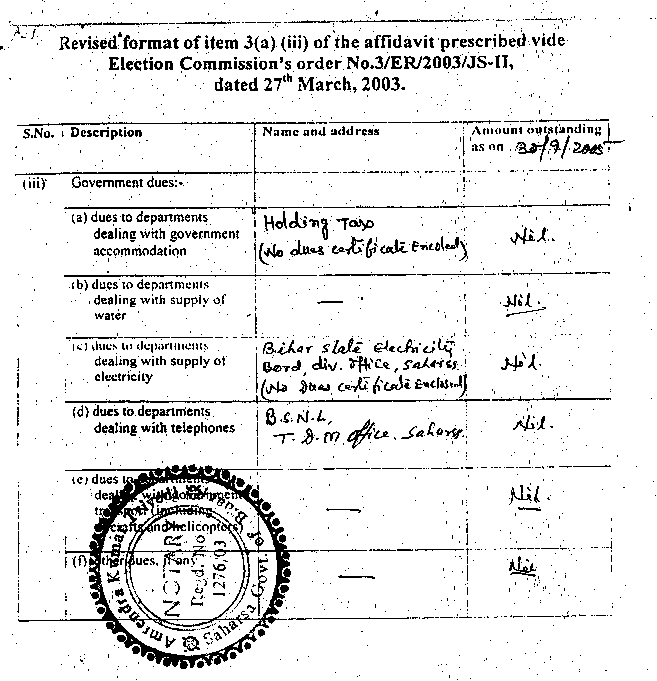 Revised format of item 3(a) (iii) of the affidavit prescribed vide
Election Commission's order No.3/ER/2003/JS-II,
dated 27th March, 2003.
S.No. Description Name and address Amount outstanding
as on 30/9/2005
(iii) Government dues:-
(a) dues to departments
dealing with government
accommodation
Holding Tax
(No dues certificate Encolsed)
Nil.
(b) dues to departments
dealing with supply of
water
—
Nil.
(c) dues to departments
dealing with supply of
electricity
Bihar State Electricity
Bord, div. office, Saharsa
(No Dues certificate Enclosed)
Nil.
(d) dues to departments
dealing with telephones
B.S.N.L,
T.D.M office. Saharsa
Nil.
(e) dues to departments
dealing with government
transport (including
aircrafts and helicopters)
—
Nil
(f) Other dues, if any
—
Nil
Amrendra Kumar
NOTARY
Regd. No
1276/03
Saharsa Govt. of